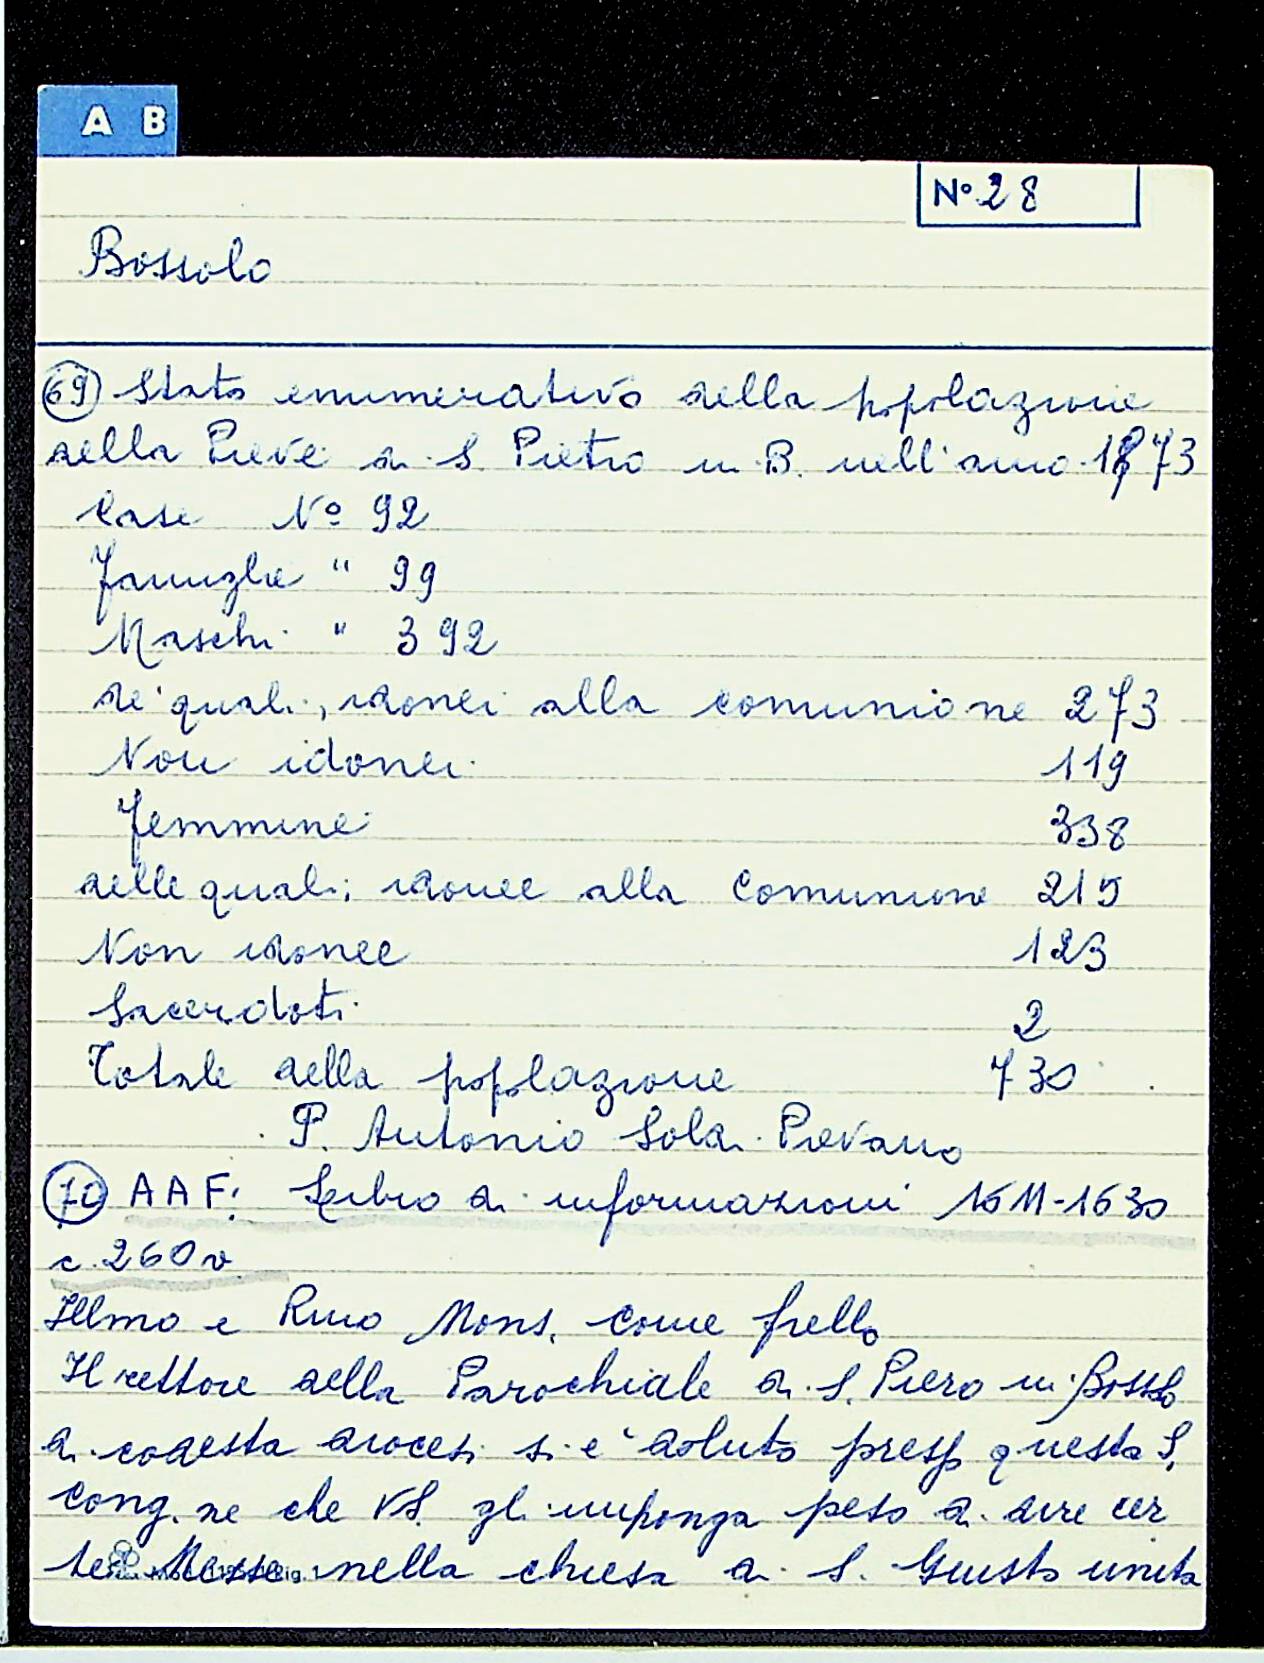 A B
N° 28
Bossolo
69 Stato enumerativo della popolazione
della Pieve di S. Pietro in B. nell'anno 1873
Case N° 92
Famiglie " 99
Maschi " 392
de' quali, idonei alla comunione 273
Non idonei 119
Femmine 338
delle quali, idonee alla Comunione 215
Non idonee 123
Sacerdoti 2
Totale della popolazione 730
P. Antonio Solai Pievano
70 AAF: Libro di informazioni 1611-1630
c. 260v
Illmo e Rmo Mons. come frello
Il rettore della Parochiale di S. Piero in Bossolo
di codesta diocesi si è doluto presso questa S.
Cong.ne che VS. gl'imponga peso di dire cer
te Messe nella chiesa di S. Giusto unita